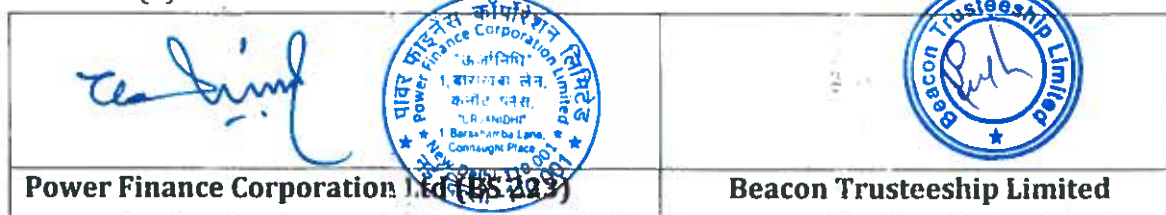 पावर फाइनेंस कॉर्पोरेशन लिमिटेड
Power Finance Corporation Limited
"ऊर्जानिधि"
1, बाराखंबा लेन,
कनॉट प्लेस,
"URJANIDHI"
1 Barakhamba Lane,
Connaught Place
Beacon Trusteeship Limited
Power Finance Corporation Ltd (BS 223)
Beacon Trusteeship Limited